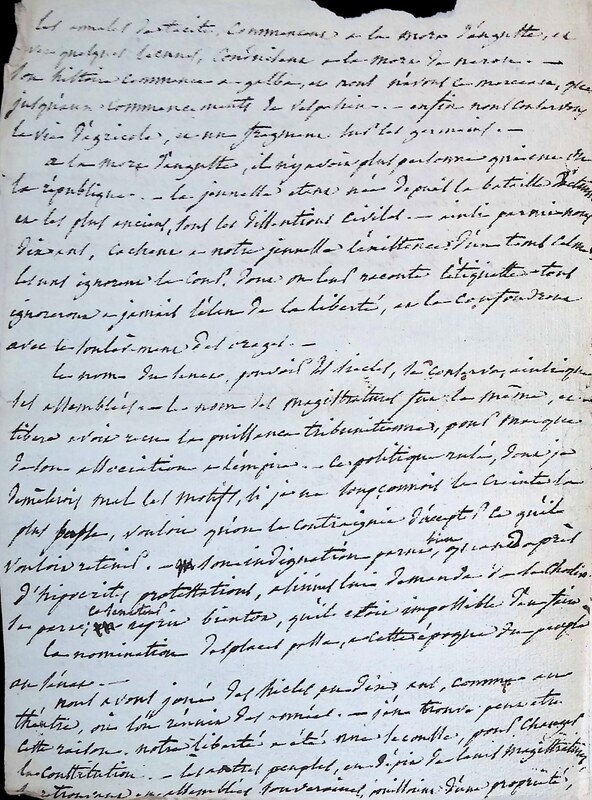 les annales de tacite, commencent a la mort d'auguste, et
avec quelques lacunes, conduisent a la mort de neron. —
son histoire commence a galba, et nous n'avons ce morceau, que
jusqu'aux commencements de vespasien. — enfin nous conservons
la vie d'agricola, et un fragment sur les germains. —
a la mort d'auguste, il n'y avoit plus personne qui eut vu
la république. — la jeunesse étoit née depuis la bataille d'actium
et les plus anciens, sous les dissentions civiles. — ainsi parmi nous
dix ans, cachent a notre jeunesse l'existence d'un tems calme
les uns ignorent le cours, dont on leur raconte l'étiquette — tous
ignoreront a jamais l'élan de la liberté, et la confondront
avec le soulèvement des orages. —
le nom du senat, pouvoir des siecles, se conserva, ainsi que
ses assemblées. — le nom des magistratures fut le même, et
tibere avoit reçu la puissance tribunitienne, pour marque
de son association a l'empire. — ce politique rusé, dont je
demêlerois mal les motifs, si je ne soupçonnois la crainte la
plus, vouloit qu'on le contraignit d'accepter ce qu'il
vouloit retenir. — son indignation parut bien, quand après
d'hipocrites protestations, asinius lui demanda de la choisir
sa part; repris bientôt, qu'il etoit impossible d'en faire
la nomination des places passa, a cette époque du peuple
au sénat. —
nous avons joué des siecles en dix ans, comme au
théatre, où l'on réunit des années. — j'en trouve peut etre
cette raison, notre liberté a été une secousse, pour changer
la constitution. — les autres peuples, en dépit de leurs magistratures,
en assemblées souveraines, jouissoient d'une propriété,